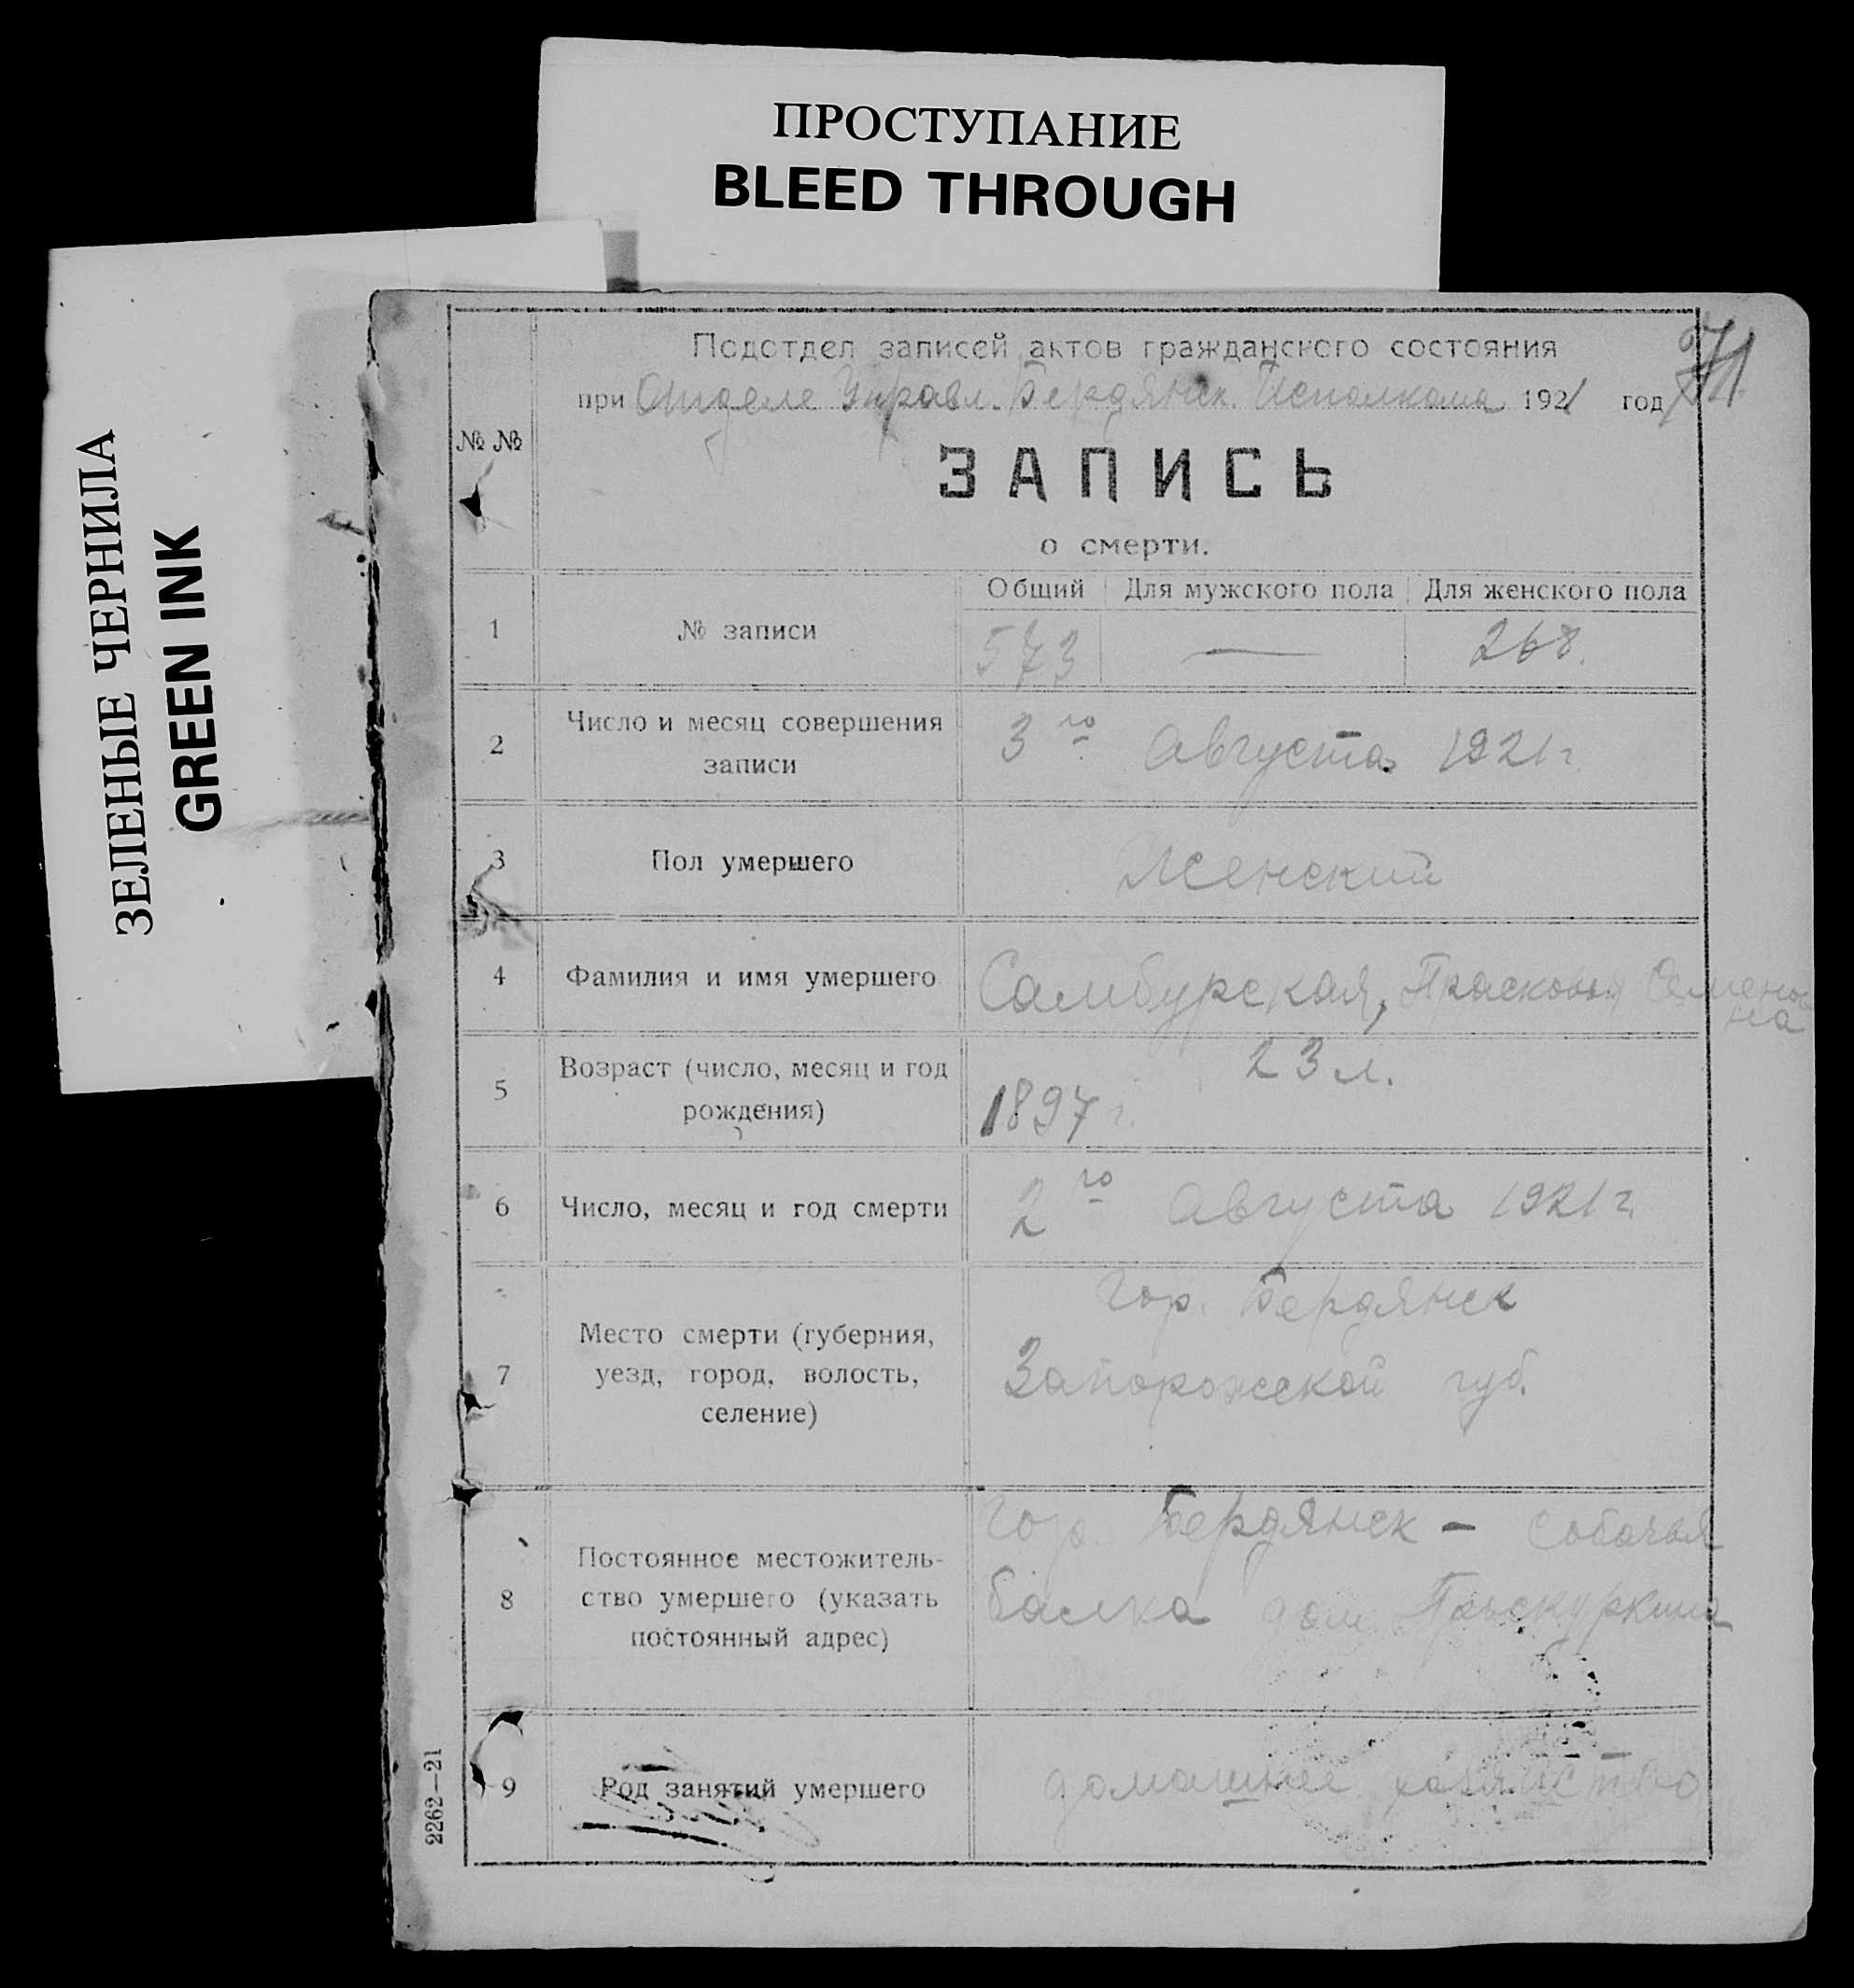 ПРОСТУПАНИЕ
BLEED THROUGH
ЗЕЛЕНЫЕ ЧЕРНИЛА
GREEN INK
71
Подотдел записей актов гражданского состояния
при Отделе Управл. Бердянск. Исполкома 1921 год
№ №
ЗАПИСЬ
о смерти.
Общий Для мужского пола Для женского пола
1 № записи 573 — 268.
2 Число и месяц совершения
записи
3го Августа 1921 г
3 Пол умершего Женский
4 Фамилия и имя умершего Самбурская, Прасковья Семенов
на
5 Возраст (число, месяц и год
рождения)
23 л.
1897 г.
6 Число, месяц и год смерти 2го Августа 1921 г.
7 Место смерти (губерния,
уезд, город, волость,
селение)
Гор. Бердянск
Запорожской губ.
8 Постоянное местожитель-
ство умершего (указать
постоянный адрес)
гор. Бердянск - Собачья
балка дом
9 Род занятий умершего домашнее хозяйство
2262—21